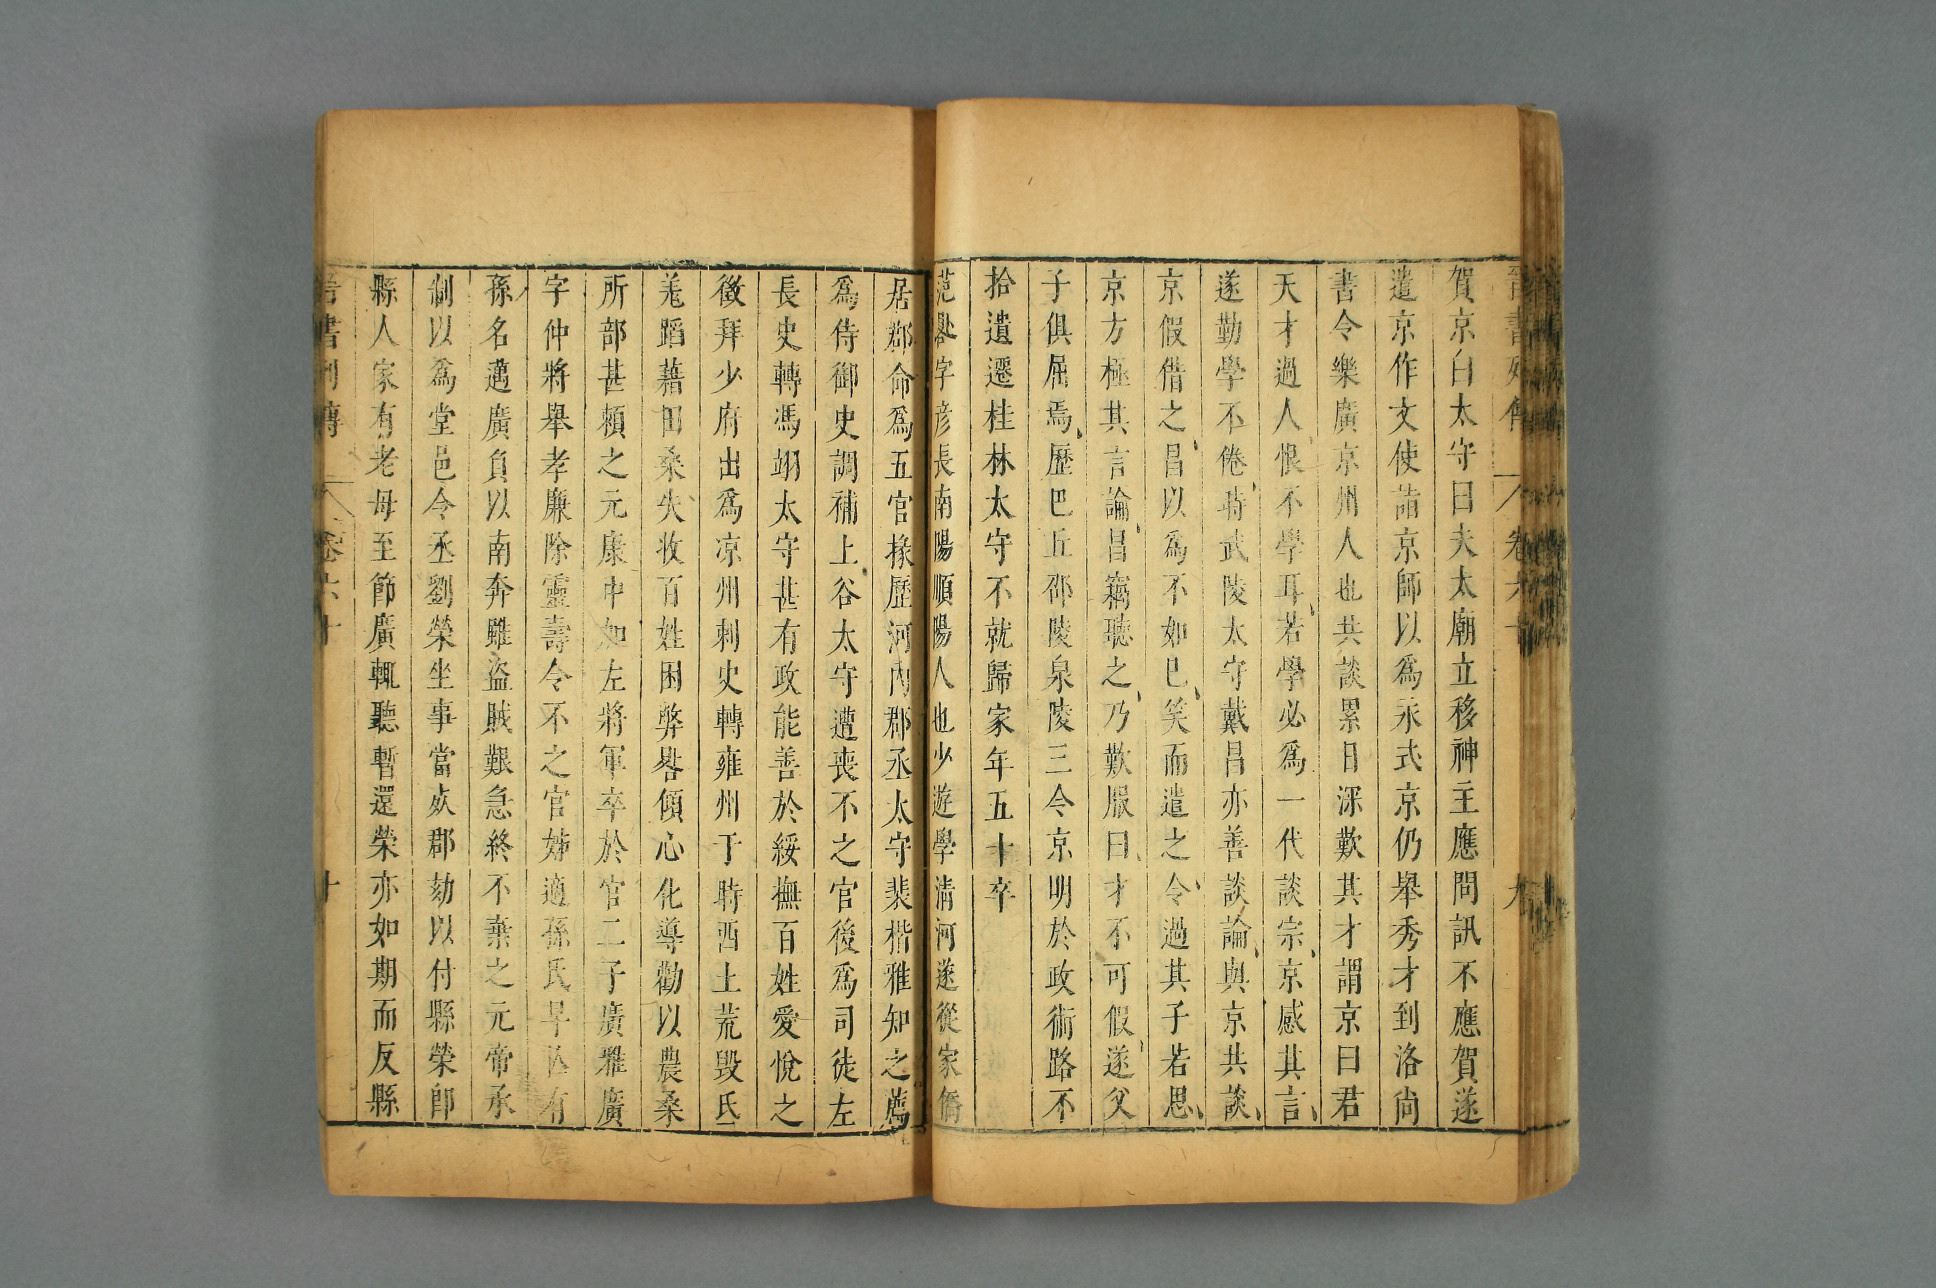 晉書列傳 卷六十一 九
賀京白太守曰夫太廟立移神主應問訊不應賀遂
遣京作文使詣京師以爲永式京仍舉秀才到洛尚
書令樂廣京州人也共談累日深歎其才謂京曰君
天才過人恨不學耳若學必爲一代談宗京感其言
遂勤學不倦時武陵太守戴昌亦善談論與京共談
京假借之昌以爲不如己笑而遣之令過其子若思
京方極其言論昌竊聽之乃歎服曰才不可假遂父
子俱屈焉歷巴丘邵陵泉陵三令京明於政術路不
拾遺遷桂林太守不就歸家年五十卒
范晷字彦長南陽順陽人也少遊學清河遂從家僑
居郡命爲五官掾歷河内郡丞太守裴楷雅知之薦
爲侍御史調補上谷太守遭喪不之官後爲司徒左
長史轉馮翊太守甚有政能善於綏撫百姓愛悅之
徵拜少府出爲凉州刺史轉雍州于時西土荒毀氐
羌蹈藉田桑失收百姓困弊晷傾心化導勸以農桑
所部甚賴之元康中加左將軍卒於官二子廣稚廣
字仲將舉孝廉除靈壽令不之官姊適孫氏早亡有
孫名邁廣負以南奔雖盜賊艱急終不棄之元帝承
制以爲堂邑令丞劉榮坐事當死郡劾以付縣榮卽
縣人家有老母至節廣輒聽暫還榮亦如期而反縣
晉書列傳 卷六十 十